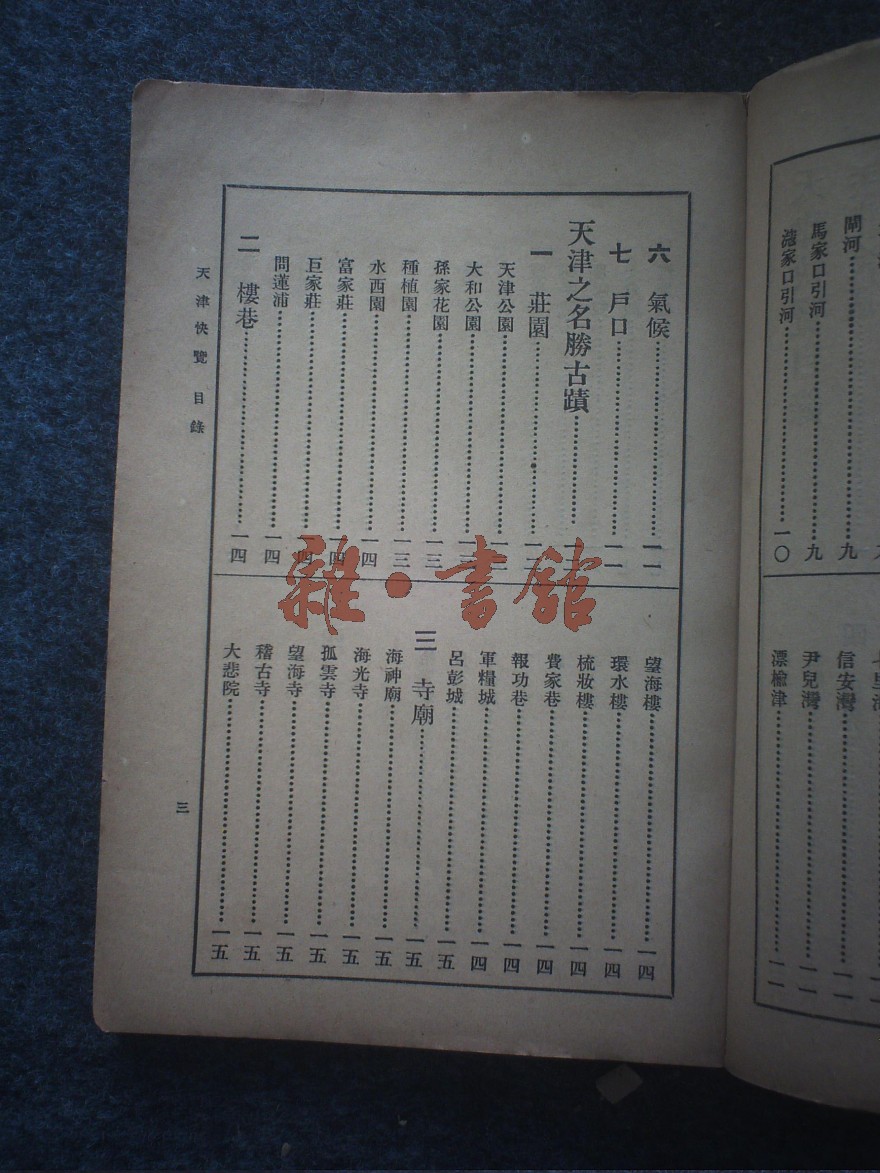 閘河……九
馬家口引河……九
家口引河……一〇
信安灣……一一
尹兒灣……一一
漂榆津……一一
六 氣候……一一
七 戶口……一一
天津之名勝古蹟……
一 莊園……
天津公園……
大和公園……
孫家花園……一三
種植園……一三
水西園……一四
富家莊……一四
巨家莊……一四
問蓮浦……一四
二 樓巷……一四
望海樓……一四
環水樓……一四
梳妝樓……一四
費家巷……一四
報功巷……一四
軍糧城……一四
呂彭城……一五
三 寺廟……一五
海神廟……一五
海光寺……一五
孤雲寺……一五
望海寺……一五
稽古寺……一五
大悲院……一五
天津快覽 目錄
三
雜·書館